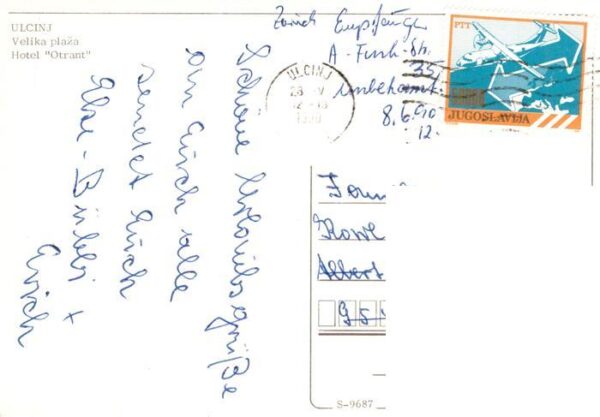 ULCINJ
Velika plaža
Hotel "Otrant"
Schöne Urlaubsgrüße
an Euch alle
sendet Euch
Elke - Bübbi +
Erich
Zurück Empfänger
A - Fink - Str.
35
unbekannt
8.6.90
12.
ULCINJ
28 - V
12 - 13
1990
PTT
JUGOSLAVIJA
Fam
Rowe
Albert
95
S-9687